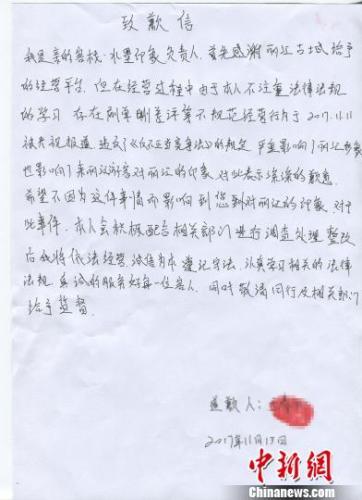 致歉信
我是亲的客栈·水墨印象负责人，首先感谢丽江古城给予
的经营平台，但在经营过程中由于本人不注重法律法规
的学习，存在刷单删差评等不规范经营行为于2017.11.11
被央视报道，违反了《反不正当竞争法》的规定，严重影响了丽江形象
也影响了来丽江游客对丽江的印象，对此表示深深的歉意
希望不因为这件事情而影响到您到对丽江的印象，对于
此事件，本人会积极配合相关部门进行调查处理，整改
后我将依法经营，诚信为本，遵纪守法，认真学习相关的法律
法规，真诚的服务好每一位客人，同时敬请同行及相关部门
给予监督。
道歉人：
2017年11月15日
中新网
Chinanews.com